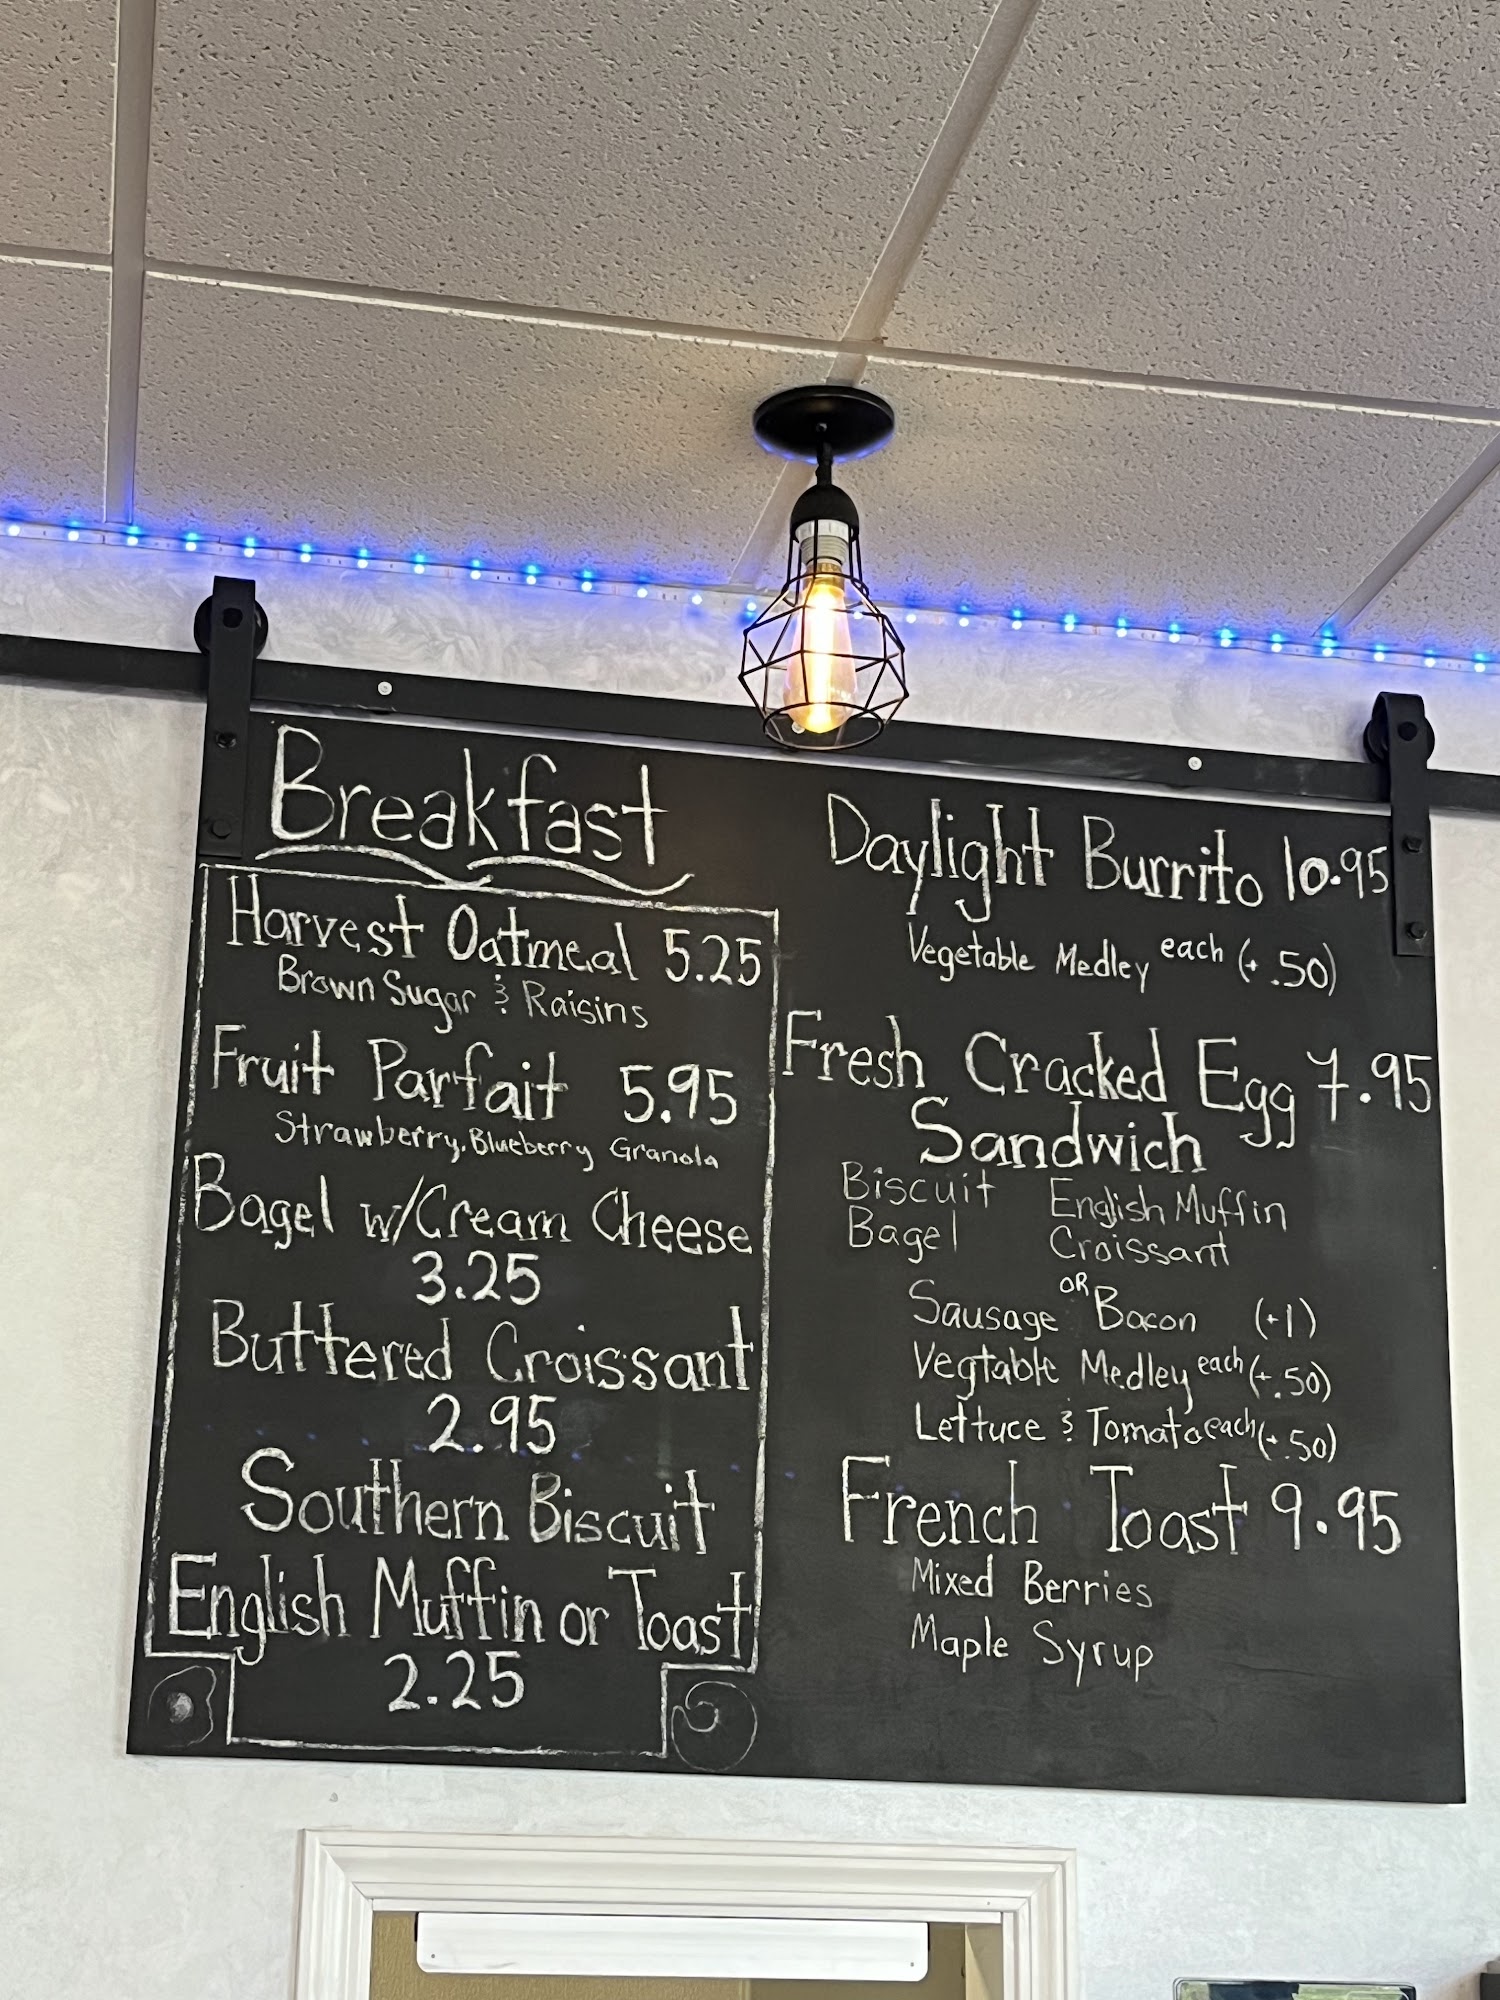 Breakfast
Harvest Oatmeal 5.25
Brown Sugar & Raisins
Fruit Parfait 5.95
Strawberry, Blueberry Granola
Bagel w/Cream Cheese
3.25
Buttered Croissant
2.95
Southern Biscuit
English Muffin or Toast
2.25
Daylight Burrito 10.95
Vegetable Medley each (+.50)
Fresh Cracked Egg 7.95
Sandwich
Biscuit English Muffin
Bagel Croissant
Sausage OR Bacon (+1)
Vegtable Medley each (+.50)
Lettuce & Tomato each (+.50)
French Toast 9.95
Mixed Berries
Maple Syrup